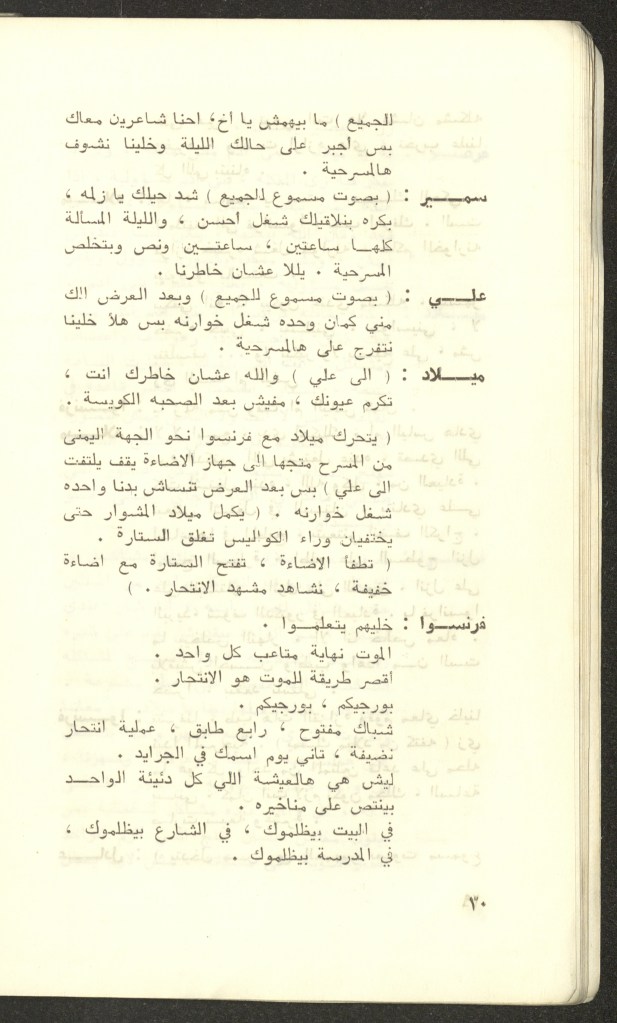 للجميع ) ما بيهمش يا اخ، احنا شاعرين معاك
بس اجبر على حالك الليلة وخلينا نشوف
هالمسرحية .
سمير : ( بصوت مسموع للجميع ) شد حيلك يا زلمه ،
بكره بنلاقيلك شغل احسن ، والليلة المسالة
كلها ساعتين ، ساعتين ونص وبتخلص
المسرحية . يللا عشان خاطرنا .
علي : ( بصوت مسموع للجميع ) وبعد العرض الك
مني كمان وحده شغل خوارنه بس هلأ خلينا
نتفرج على هالمسرحية .
ميلاد : ( الى علي ) والله عشان خاطرك انت ،
تكرم عيونك ، مفيش بعد الصحبه الكويسة .
( يتحرك ميلاد مع فرنسوا نحو الجهة اليمنى
من المسرح متجها الى جهاز الاضاءة يقف يلتفت
الى علي ) بس بعد العرض تنساش بدنا واحده
شغل خوارنه . ( يكمل ميلاد المشوار حتى
يختفيان وراء الكواليس تغلق الستارة .
( تطفأ الاضاءة ، تفتح الستارة مع اضاءة
خفيفة ، نشاهد مشهد الانتحار . )
فرنسوا : خليهم يتعلموا .
الموت نهاية متاعب كل واحد .
اقصر طريقة للموت هو الانتحار .
بورجيكم ، بورجيكم .
شباك مفتوح ، رابع طابق ، عملية انتحار
نضيفة ، تاني يوم اسمك في الجرايد .
ليش هي هالعيشة اللي كل دئيئة الواحد
بينتص على مناخيره .
في البيت بيظلموك ، في الشارع بيظلموك ،
في المدرسة بيظلموك .
٣٠